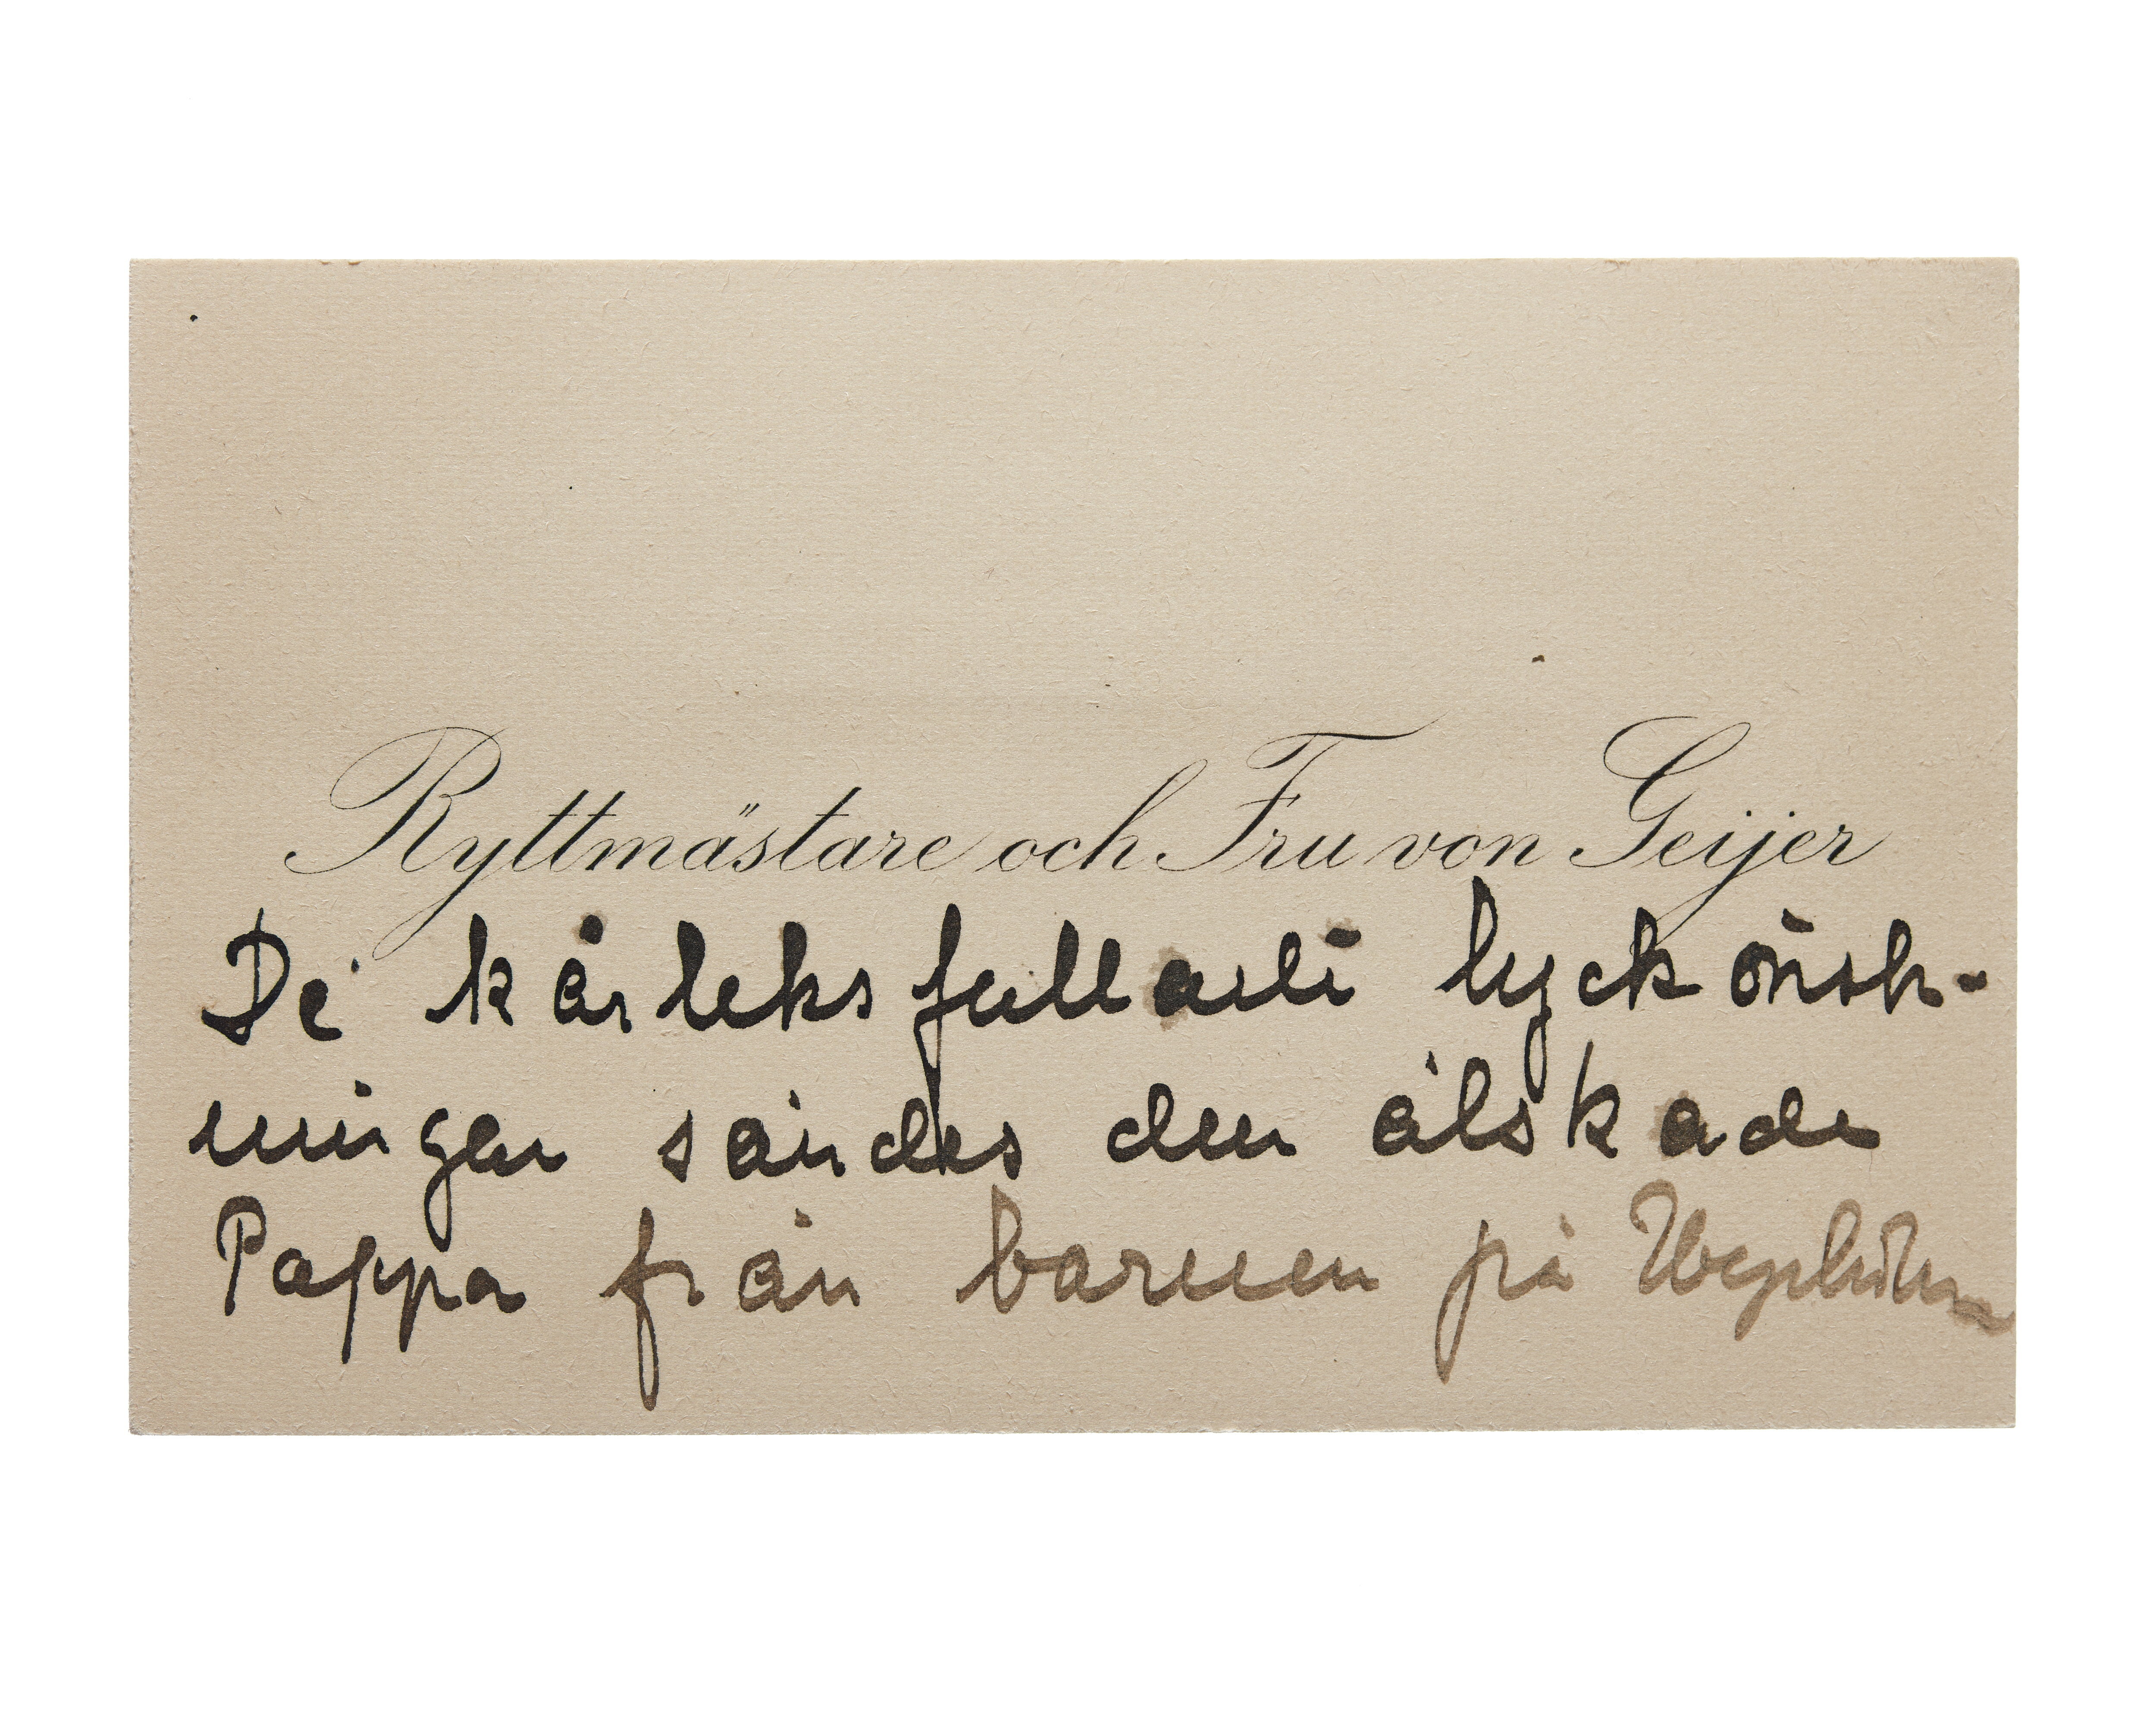 Ryttmästare och Fru von Geijer
De kärleksfullaste lyckönsk-
ningar sändes den älskade
Pappa från barnen på